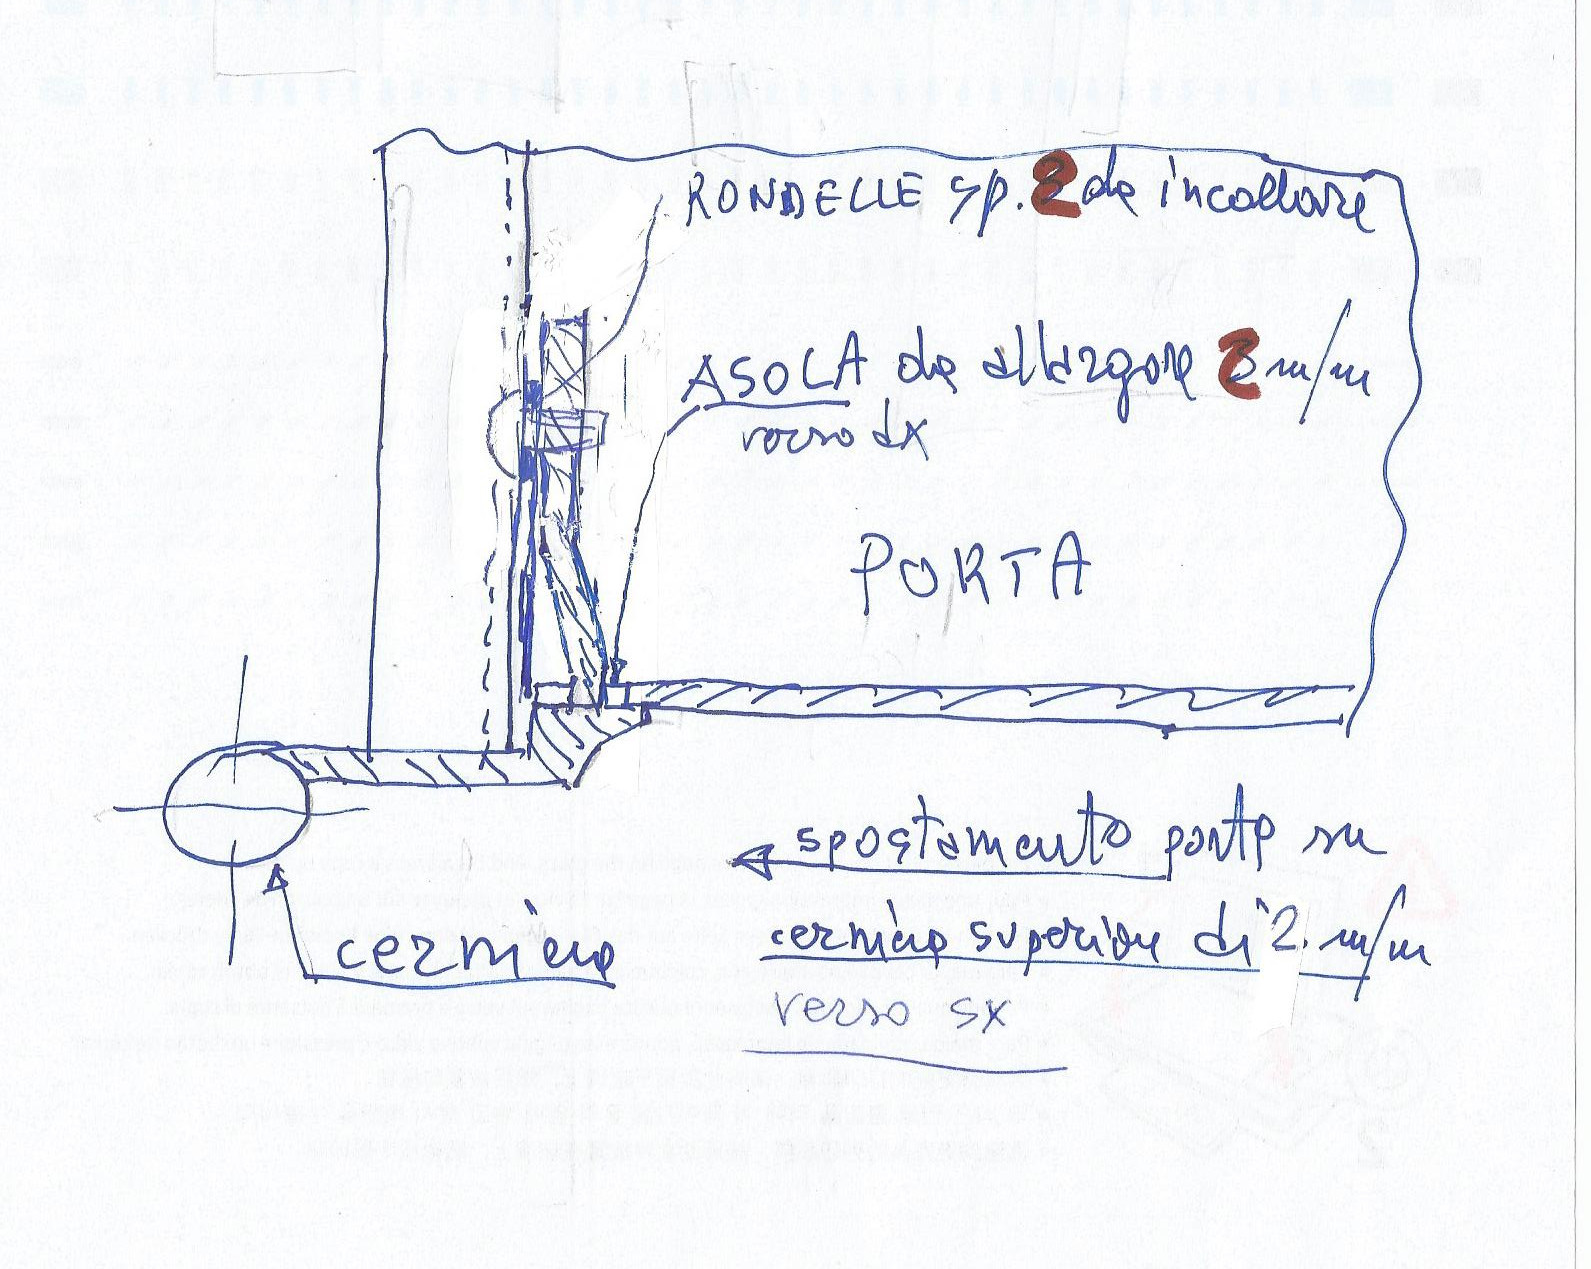 RONDELLE sp. 2 da incollare
ASOLA da allargare 2 m/m
verso dx
PORTA
spostamento porta su
cerniera superiore di 2 m/m
cerniera
verso sx